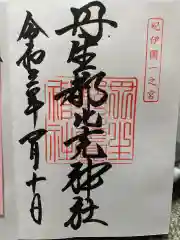 紀伊國一之宮
丹生都比売神社
令和 年 月十日